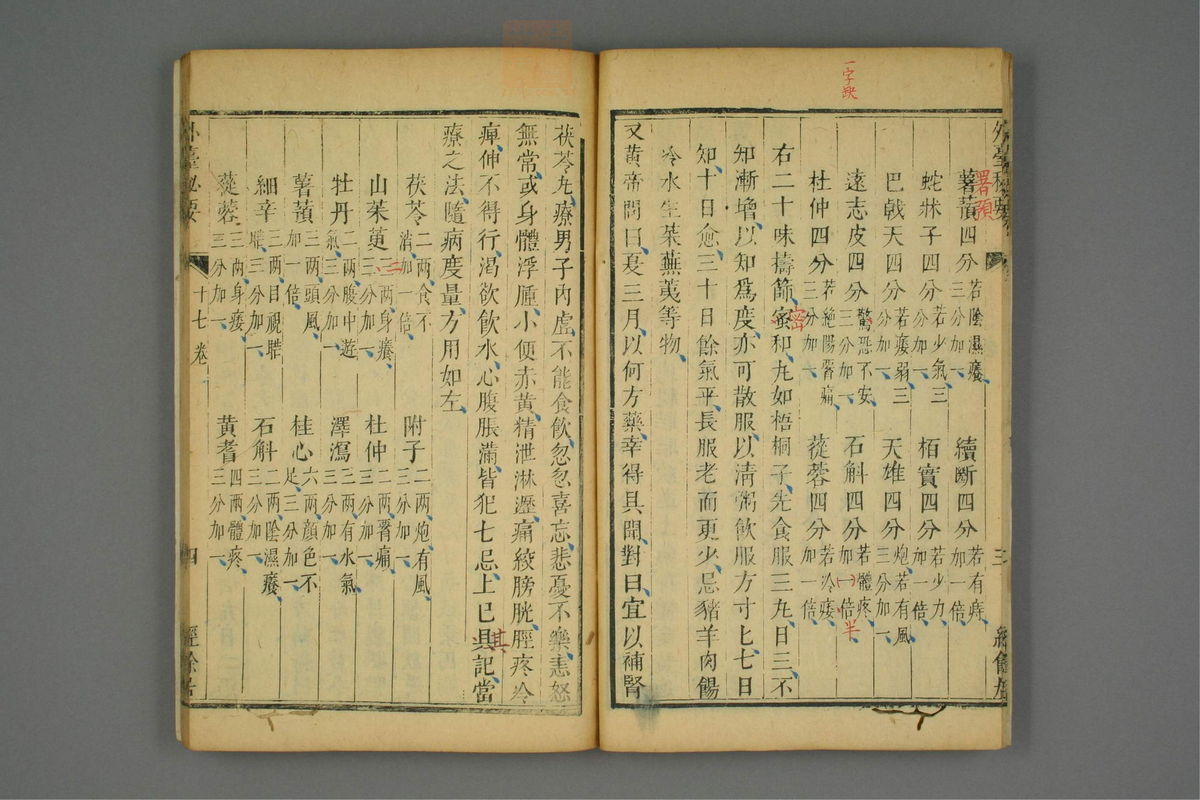 一字缺
外臺秘要
薯蕷四分若陰濕癢三分加一 續斷四分若有痔加一倍
署預
蛇牀子四分若少氣三分加一 栢實四分若少力加一倍
巴戟天四分若痿弱三分加一 天雄四分炮若有風三分加一
遠志皮四分驚恐不安三分加一 石斛四分若體疼加一倍
半
杜仲四分若絶陽腎痛三分加一 蓯蓉四分若冷痿加一倍
右二十味擣篩蜜和丸如梧桐子先食服三丸日三不
密
知漸增以知爲度亦可散服以清粥飲服方寸匕七日
知十日愈三十日餘氣平長服老而更少忌豬羊肉餳
冷水生菜蕪荑等物
又黄帝問曰夏三月以何方藥幸得具聞對曰宜以補腎
茯苓丸療男子内虛不能食飲忽忽喜忘悲憂不樂恚怒
無常或身體浮腫小便赤黄精泄淋瀝痛絞膀胱脛疼冷
痺伸不得行渇欲飲水心腹脹滿皆犯七忌上已具記當
其
療之法隨病度量方用如左
茯苓二兩食不消加一倍 附子二兩炮有風三分加一
山茱萸三兩身癢三分加一 杜仲二兩腎痛三分加一
二
牡丹二兩腹中遊氣三分加一 澤瀉三兩有水氣三分加一
薯蕷三兩頭風加一倍 桂心六兩顔色不足三分加一
細辛三兩目視䀮䀮三分加一 石斛二兩陰濕癢三分加一
蓯蓉三兩身痿三分加一 黄耆四兩體疼三分加一
外臺秘要 十七卷 四 經餘居